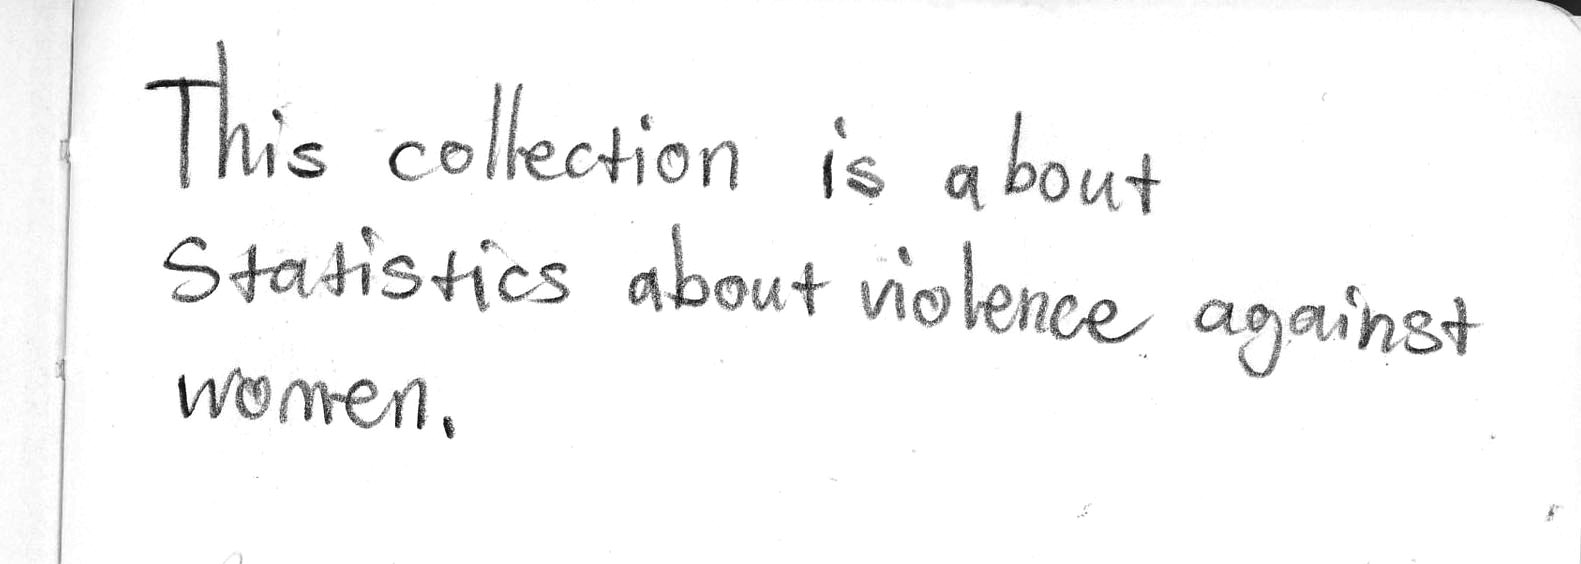 This collection is about
Statistics about violence against
women.